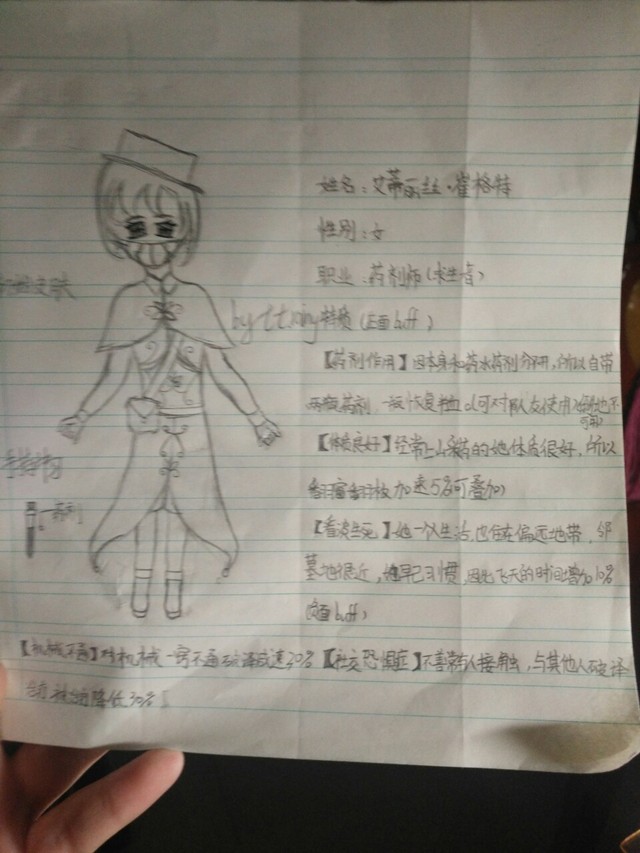 姓名：艾蒂丽丝·崔格特
性别：女
职业：药剂师（求生者）
初始皮肤
by tt
特质（正面buff）
【药剂作用】因本身和药水药剂分不开，所以自带
两瓶药剂，一瓶恢复半血
可对队友使用
【体质良好】经常上山采药的她体质很好，所以
翻窗翻板加速5%可叠加）
携带物
药剂
【看淡生死】她一个人生活，也住在偏远地带，邻
墓地很近，她早已习惯，因此飞天的时间增加10%
（负面buff）
【机械不通】对机械一窍不通破译减速30%【社交恐惧症】不善与人接触，与其他人破译
降低30%